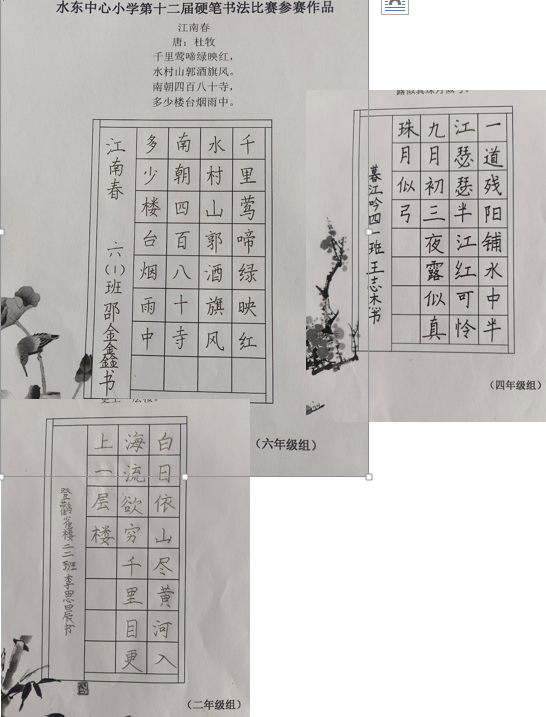 水东中心小学第十二届硬笔书法比赛参赛作品
江南春
唐：杜牧
千里莺啼绿映红，
水村山郭酒旗风。
南朝四百八十寺，
多少楼台烟雨中。
千里莺啼绿映红
水村山郭酒旗风
南朝四百八十寺
多少楼台烟雨中
江南春 六（1）班邵金鑫书
（六年级组）
一道残阳铺水中半
江瑟瑟半江红可怜
九月初三夜露似真
珠月似弓
暮江吟四一班王志杰书
（四年级组）
白日依山尽黄河入
海流欲穷千里目更
上一层楼
登鹳雀楼二二班李思晨书
（二年级组）